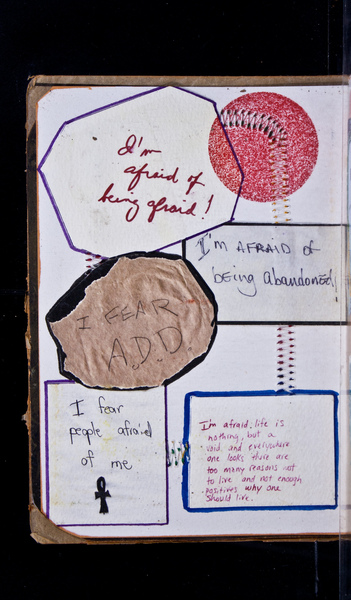 I'm
afraid of
being afraid!
I'm AFRAID of
being abandoned!
I FEAR
A.D.D.
I fear
people afraid
of me
I'm afraid life is
nothing but a
void, and everywhere
one looks there are
too many reasons not
to live and not enough
positives why one
should live.